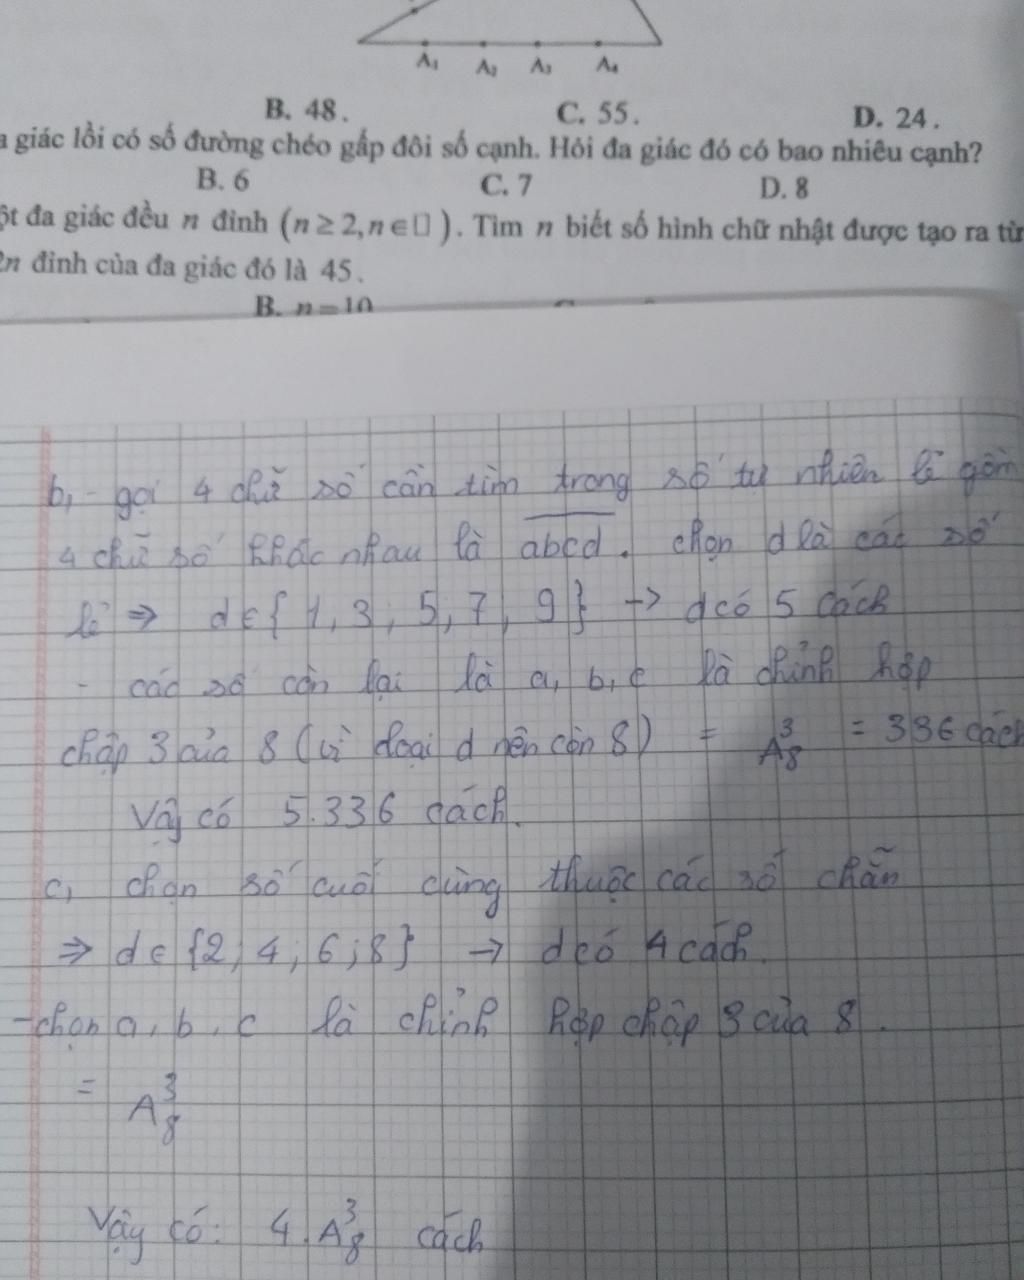 A₁ A₂ A₃ A₄
B. 48. C. 55. D. 24.
giác lồi có số đường chéo gấp đôi số cạnh. Hỏi đa giác đó có bao nhiêu cạnh?
B. 6 C. 7 D. 8
đa giác đều n đỉnh (n ≥ 2, n ∈ ▯). Tìm n biết số hình chữ nhật được tạo ra từ
đỉnh của đa giác đó là 45.
B. n = 10
b, - gọi 4 chữ số cần tìm trong số tự nhiên lẻ gồm
4 chữ số khác nhau là \overline{abcd}. chọn d là các số
lẻ ⇒ d ∈ {1, 3, 5, 7, 9} → d có 5 cách
- các số còn lại là a, b, c là chỉnh hợp
chập 3 của 8 (vì loại d nên còn 8) = A₈³ = 336 cách
Vậy có 5.336 cách.
c, chọn số cuối cùng thuộc các số chẵn
⇒ d ∈ {2; 4; 6; 8} → d có 4 cách.
- chọn a, b, c là chỉnh hợp chập 3 của 8.
= A₈³
Vậy có: 4.A₈³ cách